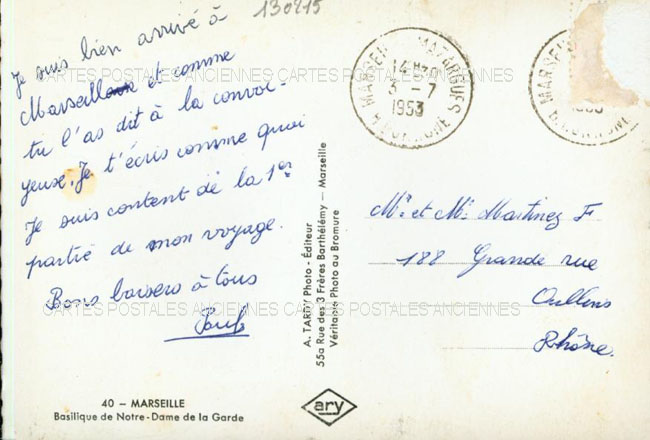 130215
Je suis bien arrivé à
Marseille et comme
tu l'as dit à la convoi-
yeuse, Je t'écris comme quoi
Je suis content de la 1er
partie de mon voyage.
Bons baisers à tous
Paul
40 - MARSEILLE
Basilique de Notre-Dame de la Garde
A. TARDY Photo - Éditeur
55a Rue des 3 Frères Barthélémy - Marseille
Véritable Photo au Bromure
ary
MARSEILLE MAZARGUES
14H30
3 - 7
1953
B. DU RHONE
MARSEI
1953
B. DU RHONE
Mr et Me Martinez F
188 Grande rue
Oullins
Rhône.
CARTES POSTALES ANCIENNES CARTES POSTALES ANCIENNES
CARTES POSTALES ANCIENNES CARTES POSTALES ANCIENNES